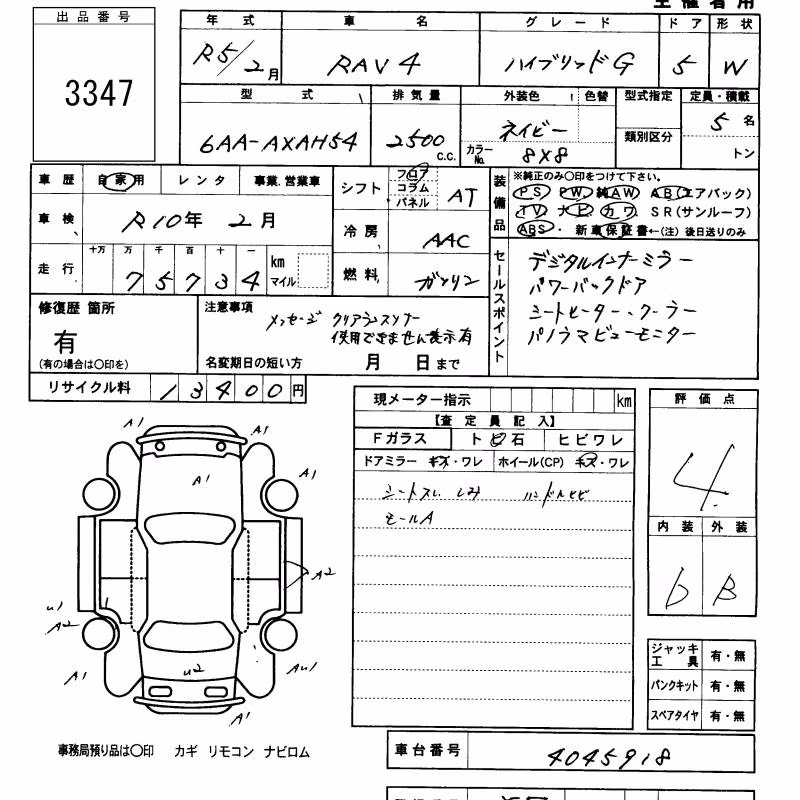 主催者用
出品番号
3347
年式 車名 グレード ドア 形状
R5/2月 RAV4 ハイブリッドG 5 W
型式 排気量 外装色 色替 型式指定 定員・積載
6AA-AXAH54 2500 c.c. ネイビー 類別区分 5名
カラーNo. 8X8 トン
車歴 自家用 レンタ 事業.営業車
車検 R10年 2月
走行 十万 万 千 百 十 一 km マイル
75734
シフト フロア コラム パネル AT
冷房 AAC
燃料 ガソリン
装備品
※純正のみ〇印をつけて下さい。
PS PW 純AW AB(エアバック)
TV ナビ カワ SR(サンルーフ)
ABS・新車保証書←(注)後日送りのみ
セールスポイント
デジタルインナーミラー
パワーバックドア
シートヒーター、クーラー
パノラマビューモニター
修復歴 箇所
有
(有の場合は〇印を)
注意事項
メッセージ クリアランスソナー
使用できません表示有
名変期日の短い方 月 日まで
リサイクル料 13400円
現メーター指示 km
【査定員記入】
Fガラス トビ石 ヒビワレ
ドアミラー キズ・ワレ ホイール(CP) キズ・ワレ
シートスレ シミ ハンドルヒビ
モールA
評価点
4
内装 外装
b B
A1
A1
A1
A1
A2
u1
A2
u2
A1
Au1
A1
ジャッキ工具 有・無
パンクキット 有・無
スペアタイヤ 有・無
事務局預り品は〇印 カギ リモコン ナビロム
車台番号 4045918